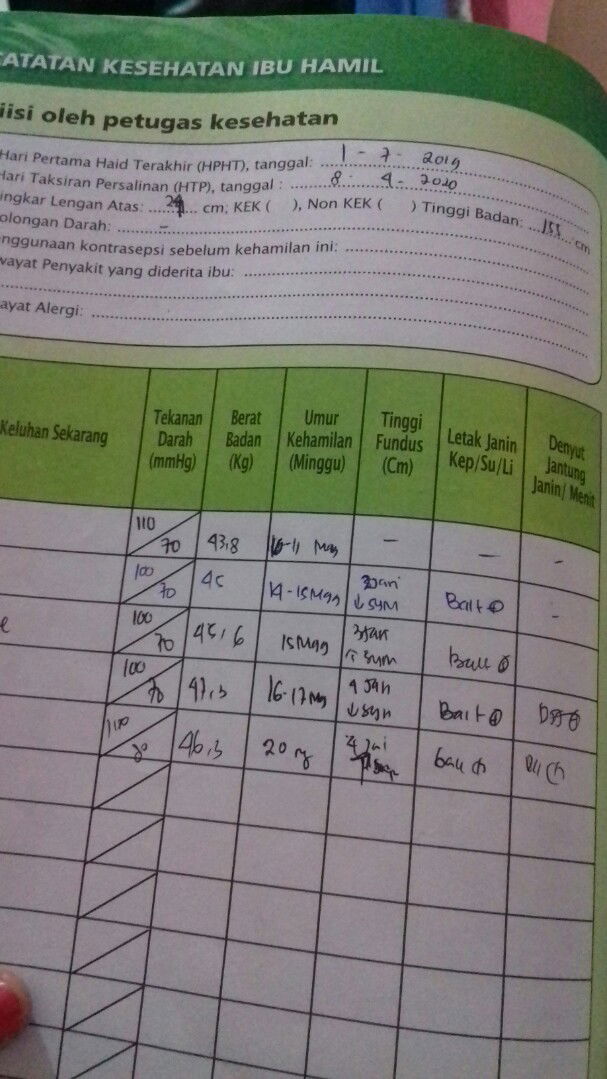 CATATAN KESEHATAN IBU HAMIL
iisi oleh petugas kesehatan
Hari Pertama Haid Terakhir (HPHT), tanggal: 1 - 7 - 2019
Hari Taksiran Persalinan (HTP), tanggal : 8 - 4 - 2020
ingkar Lengan Atas: ...... cm; KEK ( ), Non KEK ( ) Tinggi Badan: ...155... cm
olongan Darah: -
nggunaan kontrasepsi sebelum kehamilan ini:
wayat Penyakit yang diderita ibu:
ayat Alergi:
Keluhan Sekarang
Tekanan Darah (mmHg)
Berat Badan (Kg)
Umur Kehamilan (Minggu)
Tinggi Fundus (Cm)
Letak Janin Kep/Su/Li
Denyut Jantung Janin/ Menit
110/70 43,8 - - -
100/70 45 14-15 Mgg -
e 100/70 45,6 15 Mgg
100/70 47,3 16-17 Mg
46,3 20